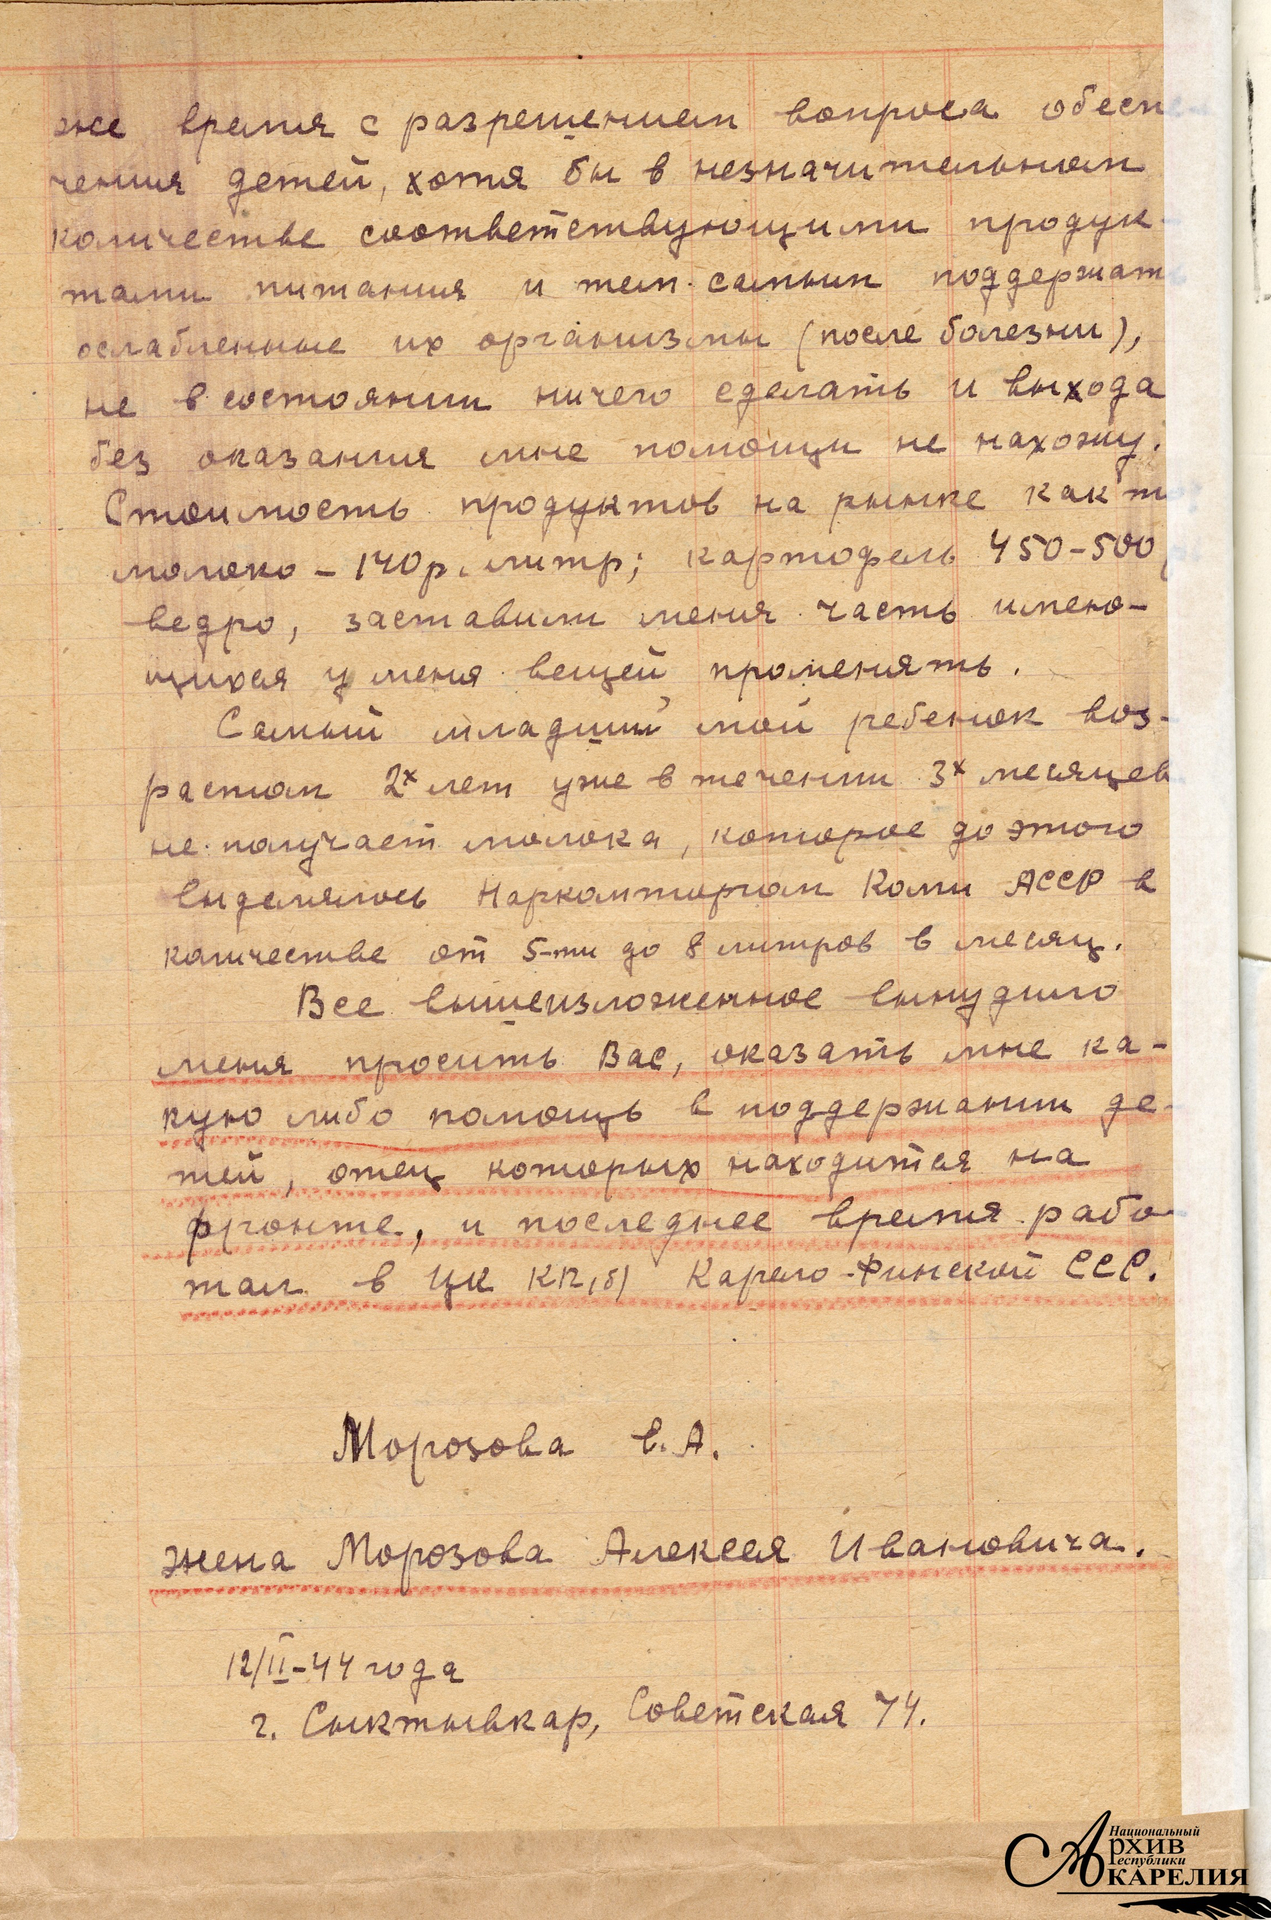 же время с разрешением вопроса обеспе-
чения детей, хотя бы в незначительном
количестве соответствующими продук-
тами питания и тем самым поддержать
ослабленные их организмы (после болезни),
не в состоянии ничего сделать и выхода
без оказания мне помощи не нахожу.
Стоимость продуктов на рынке как т
молоко – 140 р. литр; картофель 450-500
ведро, заставили меня часть имею-
щихся у меня вещей променять.
Самый младший мой ребенок воз-
растом 2х лет уже в течении 3х месяцев
не получает молока, которое до этого
выделялось Наркомторгом Коми АССР в
количестве от 5-ти до 8 литров в месяц.
Все вышеизложенное вынудило
меня просить Вас, оказать мне ка-
кую либо помощь в поддержании де-
тей, отец которых находится на
фронте, и последнее время рабо-
тал в ЦК КП(б) Карело-Финской ССР.
Морозова В.А.
жена Морозова Алексея Ивановича.
12/II-44 года
г. Сыктывкар, Советская 74.
Национальный
Архив
Республики
Карелия